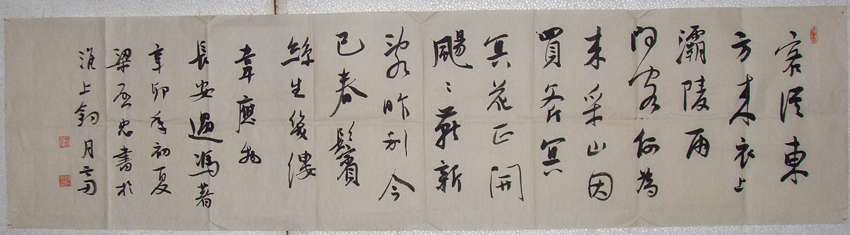 客從東
方来衣上
灞陵雨
问客何為
来采山因
買斧冥
冥花正開
颺々燕新
乳昨别今
已春鬢
絲生幾縷
韋應物
長安遇馮著
辛卯年初夏
梁忠書於
淮上钓月斋